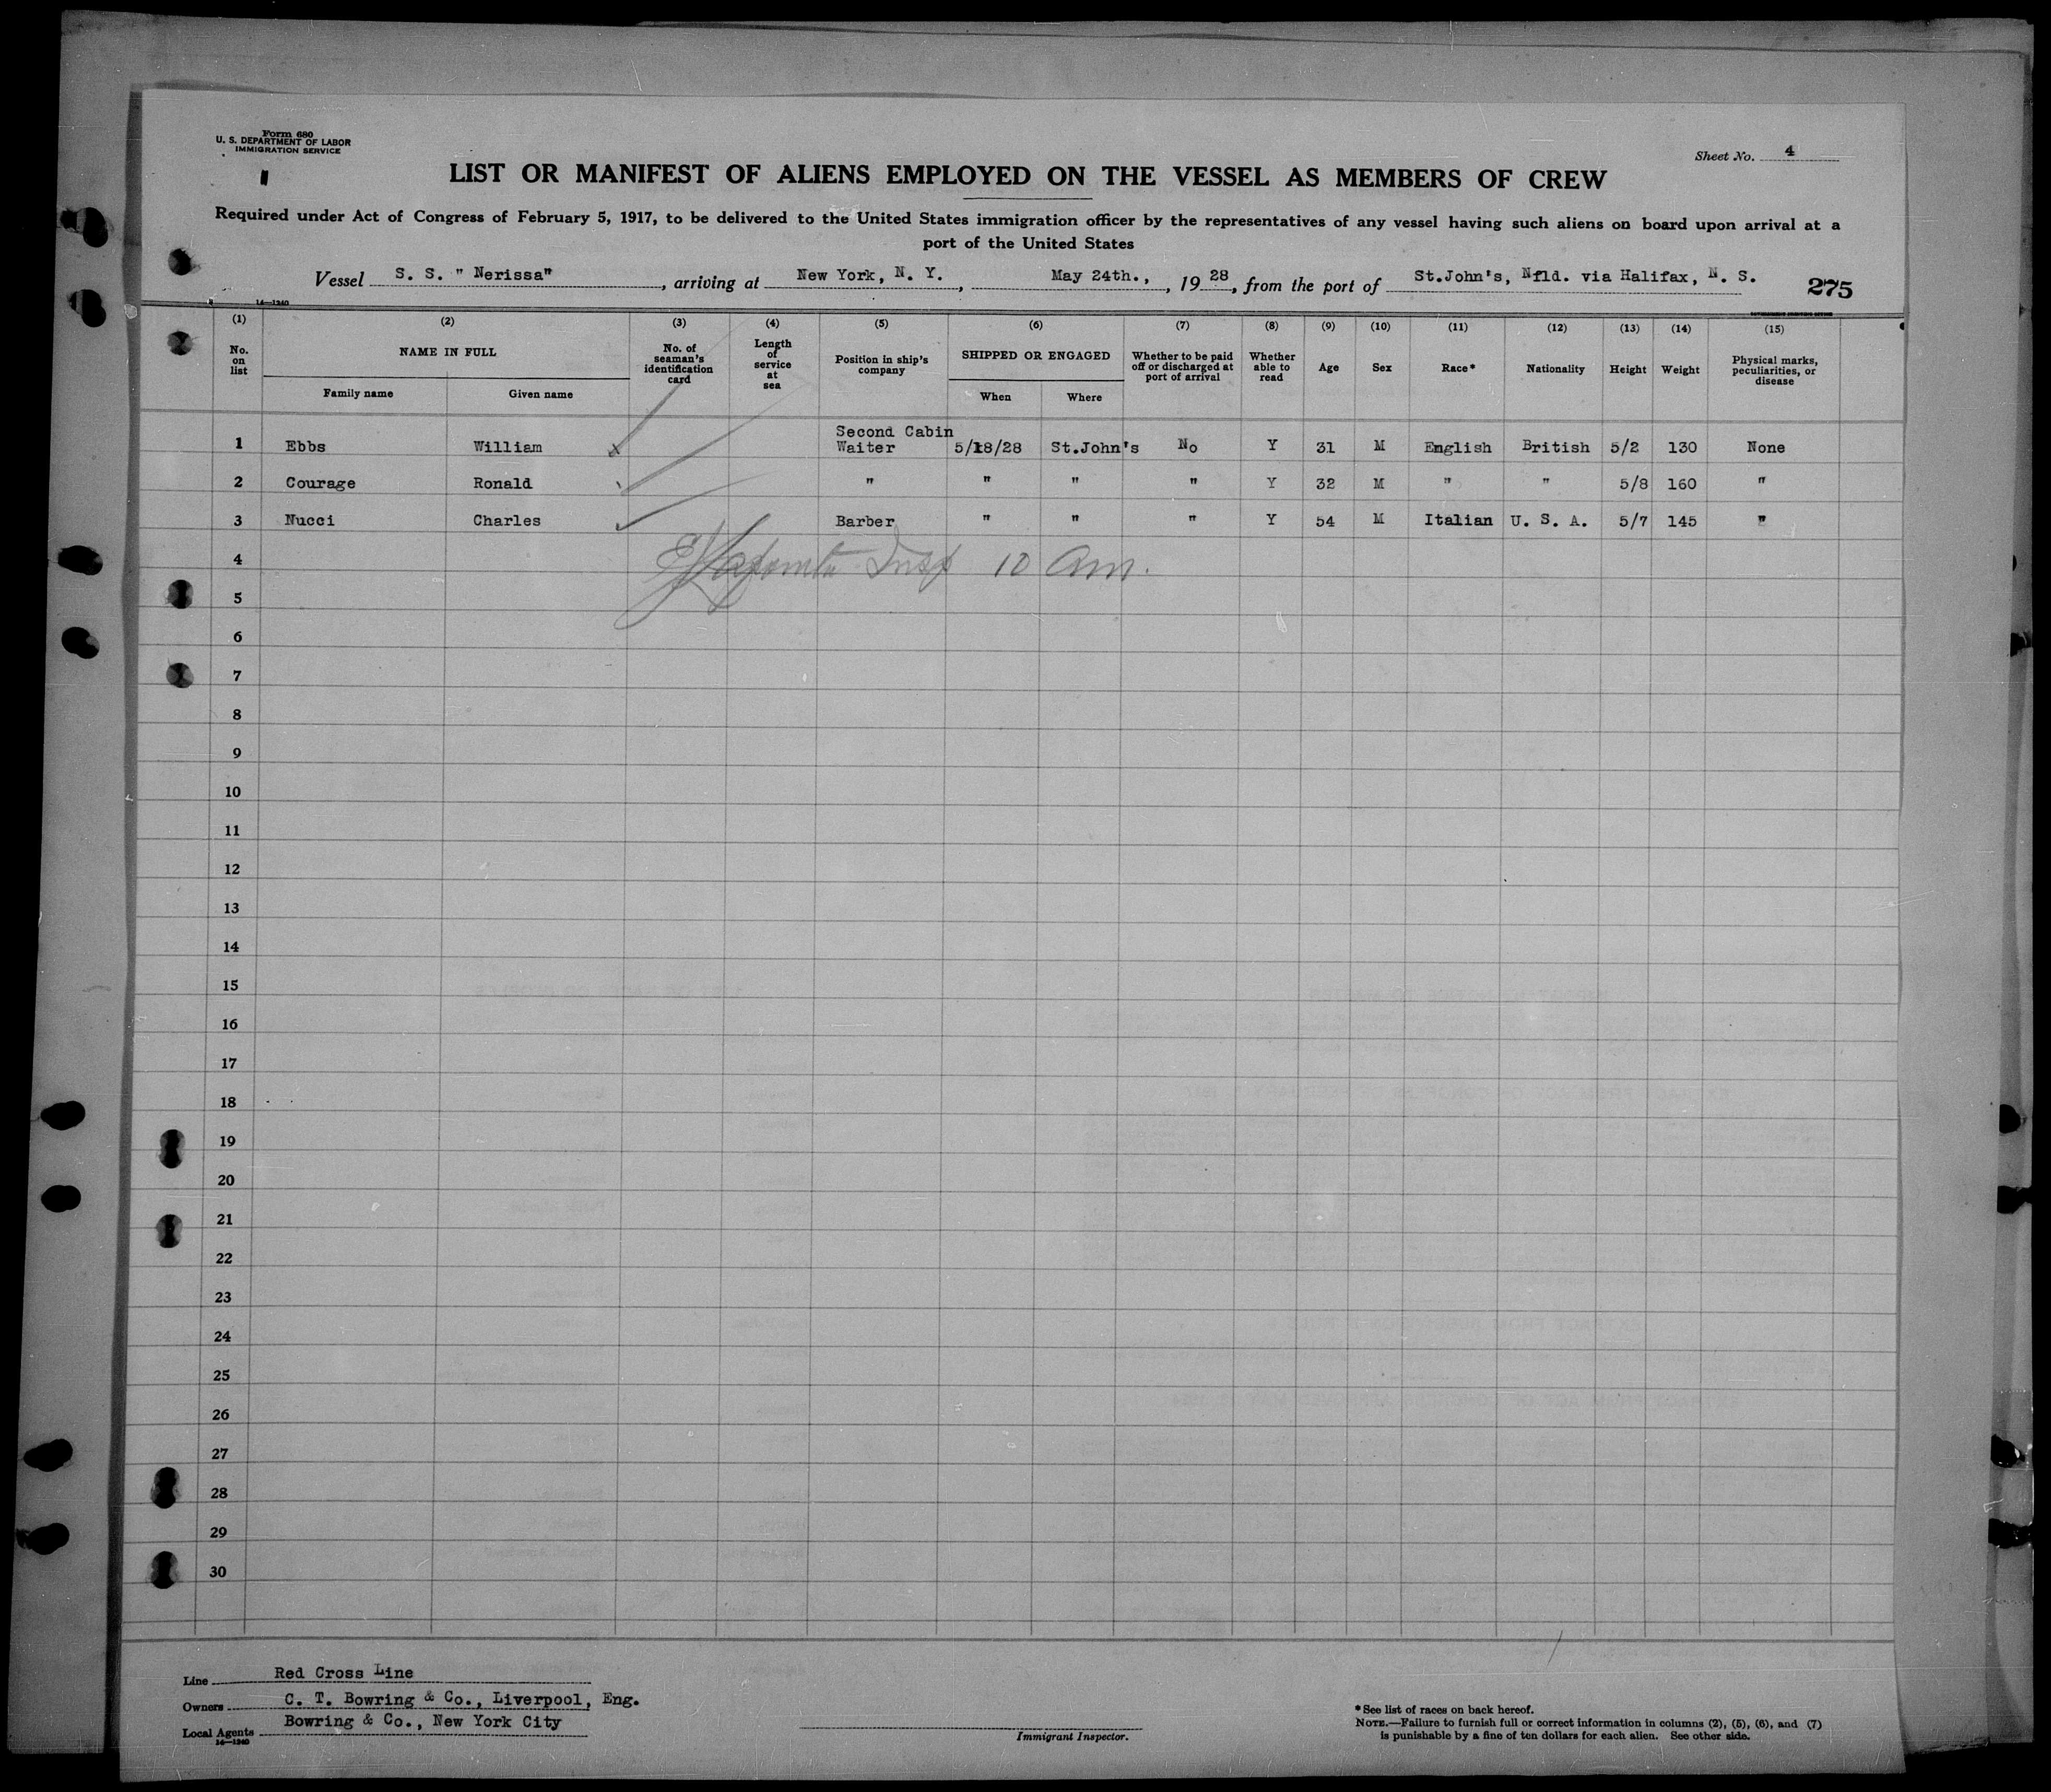 Form 680
U. S. DEPARTMENT OF LABOR
IMMIGRATION SERVICE
Sheet No. 4
LIST OR MANIFEST OF ALIENS EMPLOYED ON THE VESSEL AS MEMBERS OF CREW
Required under Act of Congress of February 5, 1917, to be delivered to the United States immigration officer by the representatives of any vessel having such aliens on board upon arrival at a
port of the United States
Vessel S. S. " Nerissa" , arriving at New York, N. Y. , May 24th., , 19 28 , from the port of St.John's, Nfld. via Halifax, N. S.
275
14—1240
(1) (2) (3) (4) (5) (6) (7) (8) (9) (10) (11) (12) (13) (14) (15)
No. on list
NAME IN FULL
Family name Given name
No. of seaman's identification card
Length of service at sea
Position in ship's company
SHIPPED OR ENGAGED
When Where
Whether to be paid off or discharged at port of arrival
Whether able to read
Age
Sex
Race*
Nationality
Height
Weight
Physical marks, peculiarities, or disease
1 Ebbs William x Second Cabin Waiter 5/18/28 St.John's No Y 31 M English British 5/2 130 None
2 Courage Ronald " " " " Y 32 M " " 5/8 160 "
3 Nucci Charles Barber " " " Y 54 M Italian U. S. A. 5/7 145 "
4 Insp 10 am.
5
6
7
8
9
10
11
12
13
14
15
16
17
18
19
20
21
22
23
24
25
26
27
28
29
30
Line Red Cross Line
Owners C. T. Bowring & Co., Liverpool, Eng.
Local Agents Bowring & Co., New York City
14—1240
Immigrant Inspector.
*See list of races on back hereof.
NOTE.—Failure to furnish full or correct information in columns (2), (5), (6), and (7)
is punishable by a fine of ten dollars for each alien. See other side.